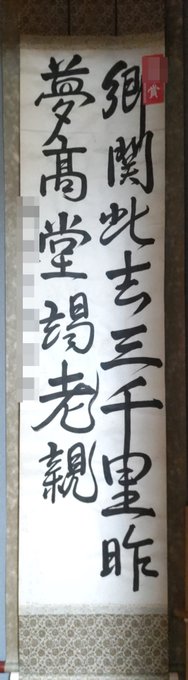 鄉關此去三千里昨
夢高堂謁老親
賞